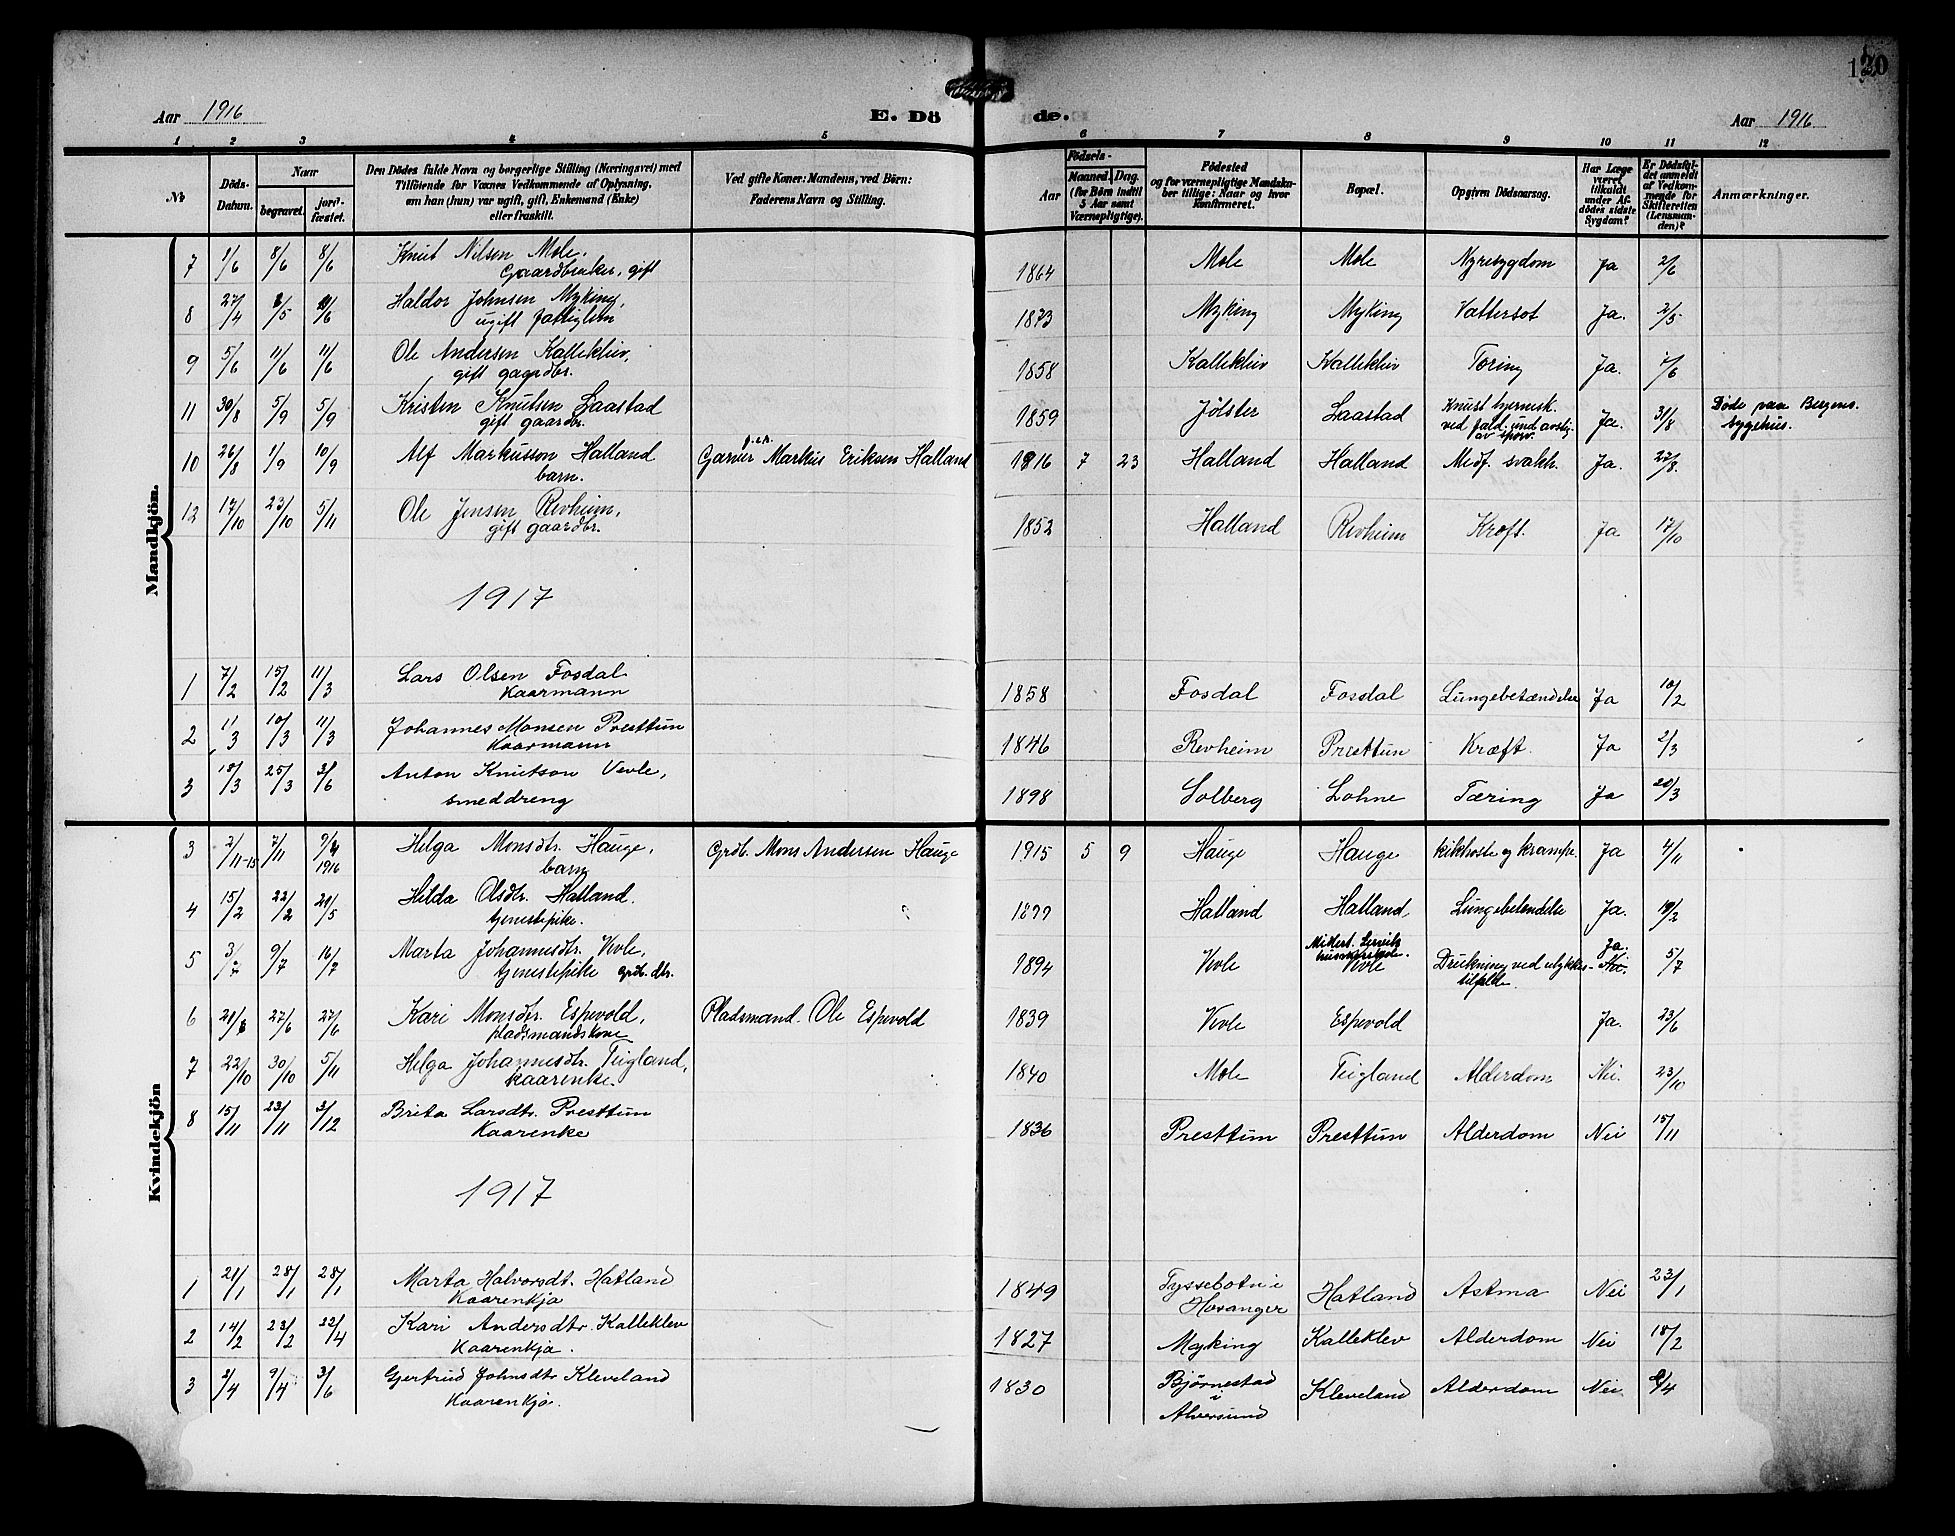 120
Aar 1916
E. Dö
de.
Aar 1916
1 2 3 4 5 6 7 8 9 10 11 12
No
Döds-Datum.
Naar
begravet.
jord-fæstet.
Den Dödes fulde Navn og borgerlige Stilling (Næringsvei) med
Tilföiende for Voxnes Vedkommende af Oplysning,
om han (hun) var ugift, gift, Enkemand (Enke)
eller fraskilt.
Ved gifte Koner: Mandens, ved Börn:
Faderens Navn og Stilling.
Födsels-
Aar
Maaned. Dag.
(for Börn indtil
5 Aar samt
Værnepligtige).
Födested
og for værnepligtige Mandska-
ber tillige: Naar og hvor
konfirmeret.
Bopæl.
Opgiven Dödsaarsag.
Har Læge
været
tilkaldt
under Af-
dödes sidste
Sygdom?
Er Dödsfal-
det anmeldt
af Vedkom-
mende for
Skifteretten
(Lensman-
den)?
Anmærkninger.
Mandkjön.
7 1/6 8/6 8/6 Knut Nilsen Mole. 1864 Mole Mole Nyresygdom Ja 2/6
Gaardbruker, gift
8 27/4 /5 /6 Haldor Johnsen Myking, 1873 Myking Myking Vattersot Ja. 2/5
ugift fattiglem
9 5/6 11/6 11/6 Ole Andersen Kalleklev, 1858 Kalleklev Kalleklev Tæring Ja. /6
gift gaardbr.
11 30/8 5/9 5/9 Kristen Knutsen Laastad 1859 Jølster Laastad Knust hjernesk. Ja. 31/8 Døde paa Bergens
gift gaardbr. ved fald. und avstig. sygehus.
av sporv.
10 26/8 1/9 10/9 Alf Markusson Hatland Garver Markus Eriksen Hatland 1916 7 23 Hatland Hatland Medf. svakh. Ja. 27/8
barn.
12 17/10 23/10 5/11 Ole Jensen Revheim, 1852 Hatland Revheim Kræft. Ja 17/10
gift gaardbr.
1917
1 7/2 15/2 11/3 Lars Olsen Fosdal 1858 Fosdal Fosdal Lungebetændelse Ja 10/2
Kaarmann
2 1/3 10/3 11/3 Johannes Monsen Presttun 1846 Revheim Presttun Kræft. Ja 2/3
Kaarmann
3 18/3 25/3 3/6 Anton Knutson Vevle, 1898 Solberg Lohne Tæring Ja 20/3
smeddreng
Kvindekjön
3 2/11-15 7/11 9/ 1916 Helga Monsdtr. Hauge, Grdb. Mons Andersen Hauge 1915 5 9 Hauge Hauge kikhoste og krampe. Ja 4/11
barn
4 15/2 22/2 21/5 Hilda Olsdtr. Hatland. 1899 Hatland Hatland, Lungebetendelse Ja. 19/2
tjenestepike.
5 3/7 9/7 16/7 Marta Johannesdtr. Vevle, 1894 Vevle Vevle Drukning ved ulykkes- Ja. Nei. 5/7
tjenestepike grdb. dtr. tilfælde.
6 21/6 27/6 27/6 Kari Monsdtr. Espevold, Pladsmand. Ole Espevold 1839 Vevle Espevold Ja. 23/6
pladsmandskone
7 22/10 30/10 5/11 Helga Johannesdtr. Teigland, 1840 Mole Teigland Alderdom Nei. 23/10
kaarenke.
8 15/11 23/11 3/12 Brita Larsdtr. Presttun 1836 Presttun Presttun Alderdom Nei 15/11
Kaarenke
1917
1 21/1 28/1 28/1 Marta Halvorsdt. Hatland 1849 Tyssebotn i Hatland Astma Nei 23/1
Kaarenkja Hosanger
2 14/2 23/2 22/4 Kari Andersdtr Kalleklev 1827 Myking Kalleklev Alderdom Nei 18/2
Kaarenkja.
3 2/4 9/4 3/6 Gjertrud Johnsdtr Kleveland 1830 Bjørnestad Kleveland Alderdom Nei. /4
Kaarenkja. i
Alversund